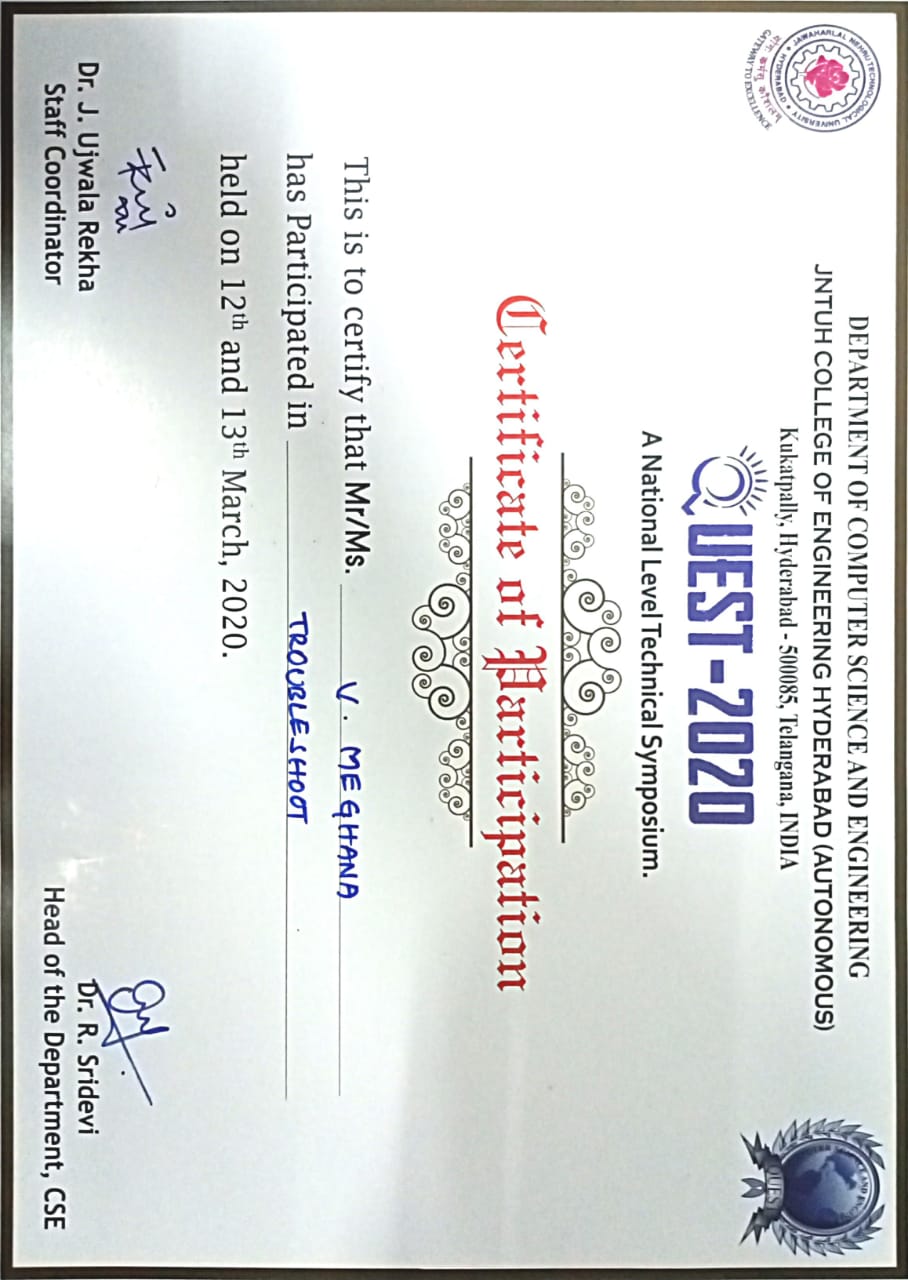 JAWAHARLAL NEHRU TECHNOLOGICAL UNIVERSITY
* HYDERABAD *
योगः कर्मसु कौशलम्
GATEWAY TO EXCELLENCE
DEPARTMENT OF COMPUTER SCIENCE AND ENGINEERING
JNTUH COLLEGE OF ENGINEERING HYDERABAD (AUTONOMOUS)
Kukatpally, Hyderabad - 500085, Telangana, INDIA
QUEST-2020
A National Level Technical Symposium.
QUEST
Certificate of Participation
This is to certify that Mr/Ms. V. MEGHANA
has Participated in TROUBLESHOOT
held on 12th and 13th March, 2020.
Dr. J. Ujwala Rekha
Staff Coordinator
Dr. R. Sridevi
Head of the Department, CSE